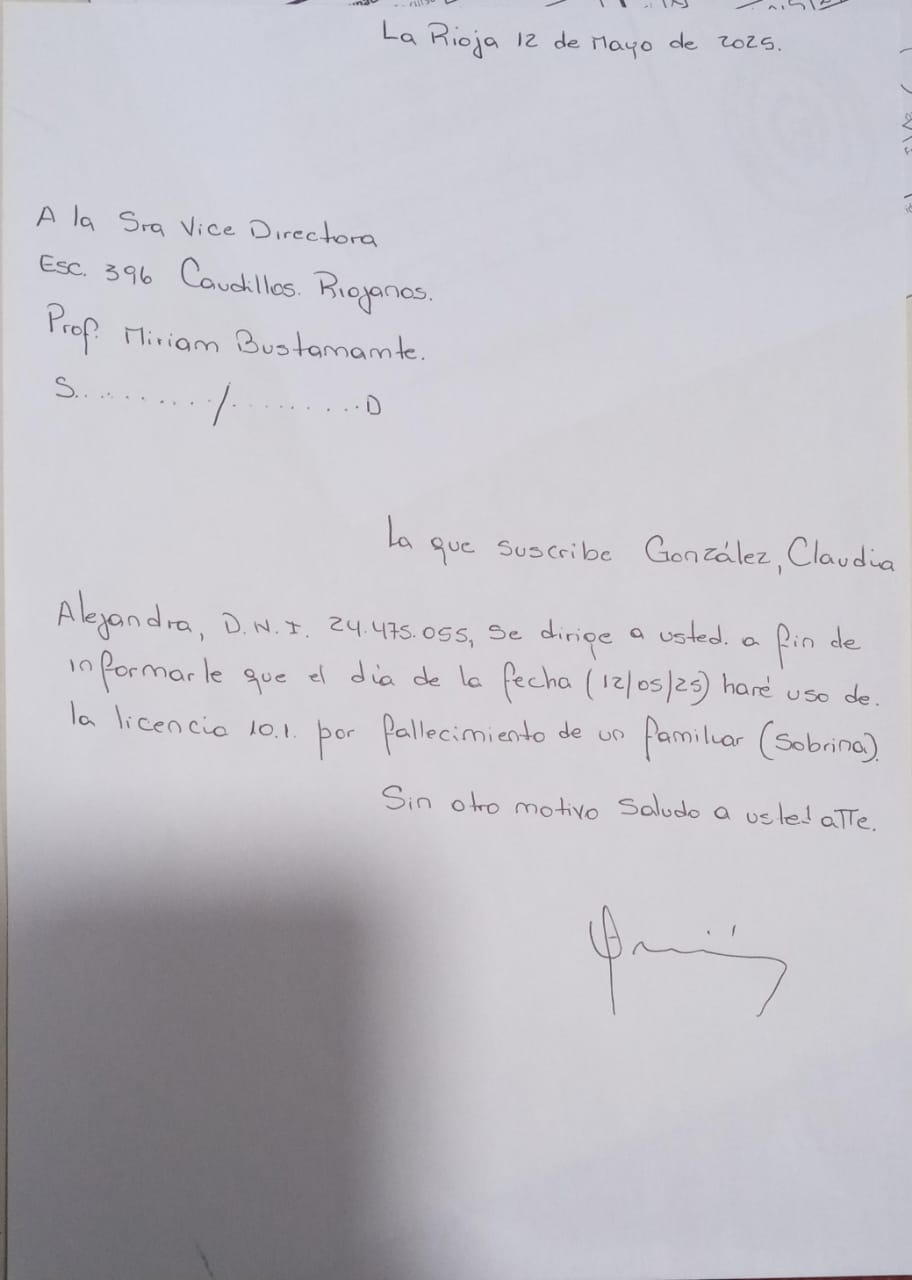 La Rioja 12 de Mayo de 2025.
A la Sra Vice Directora
Esc. 396 Caudillos. Riojanos.
Prof. Miriam Bustamante.
S........./.........D
La que suscribe González, Claudia
Alejandra, D.N.I. 24.475.055, se dirige a usted. a fin de
informarle que el día de la fecha (12/05/25) haré uso de.
la licencia 10.1. por fallecimiento de un familiar (Sobrina).
Sin otro motivo Saludo a usted aTTe.